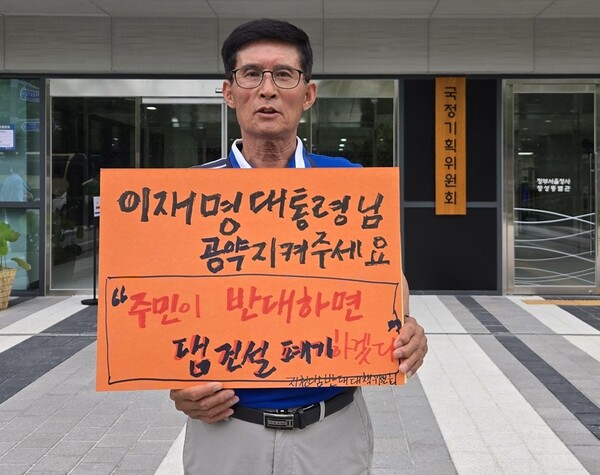 이재명대통령님
공약지켜주세요
“주민이 반대하면
댐 건설 폐기하겠다”
지천댐반대대책위원회
국정기획위원회
정부서울청사
창성동별관